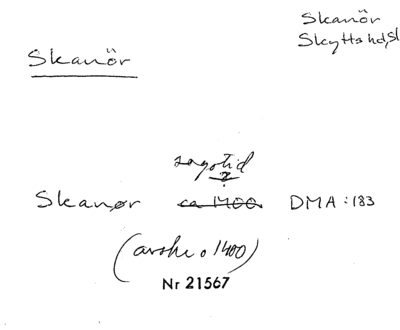 Skanör
Skyttshd, Sk
Skanör
sagotid
?
Skanør ca 1400. DMA:183
(avskr. o 1400)
Nr 21567